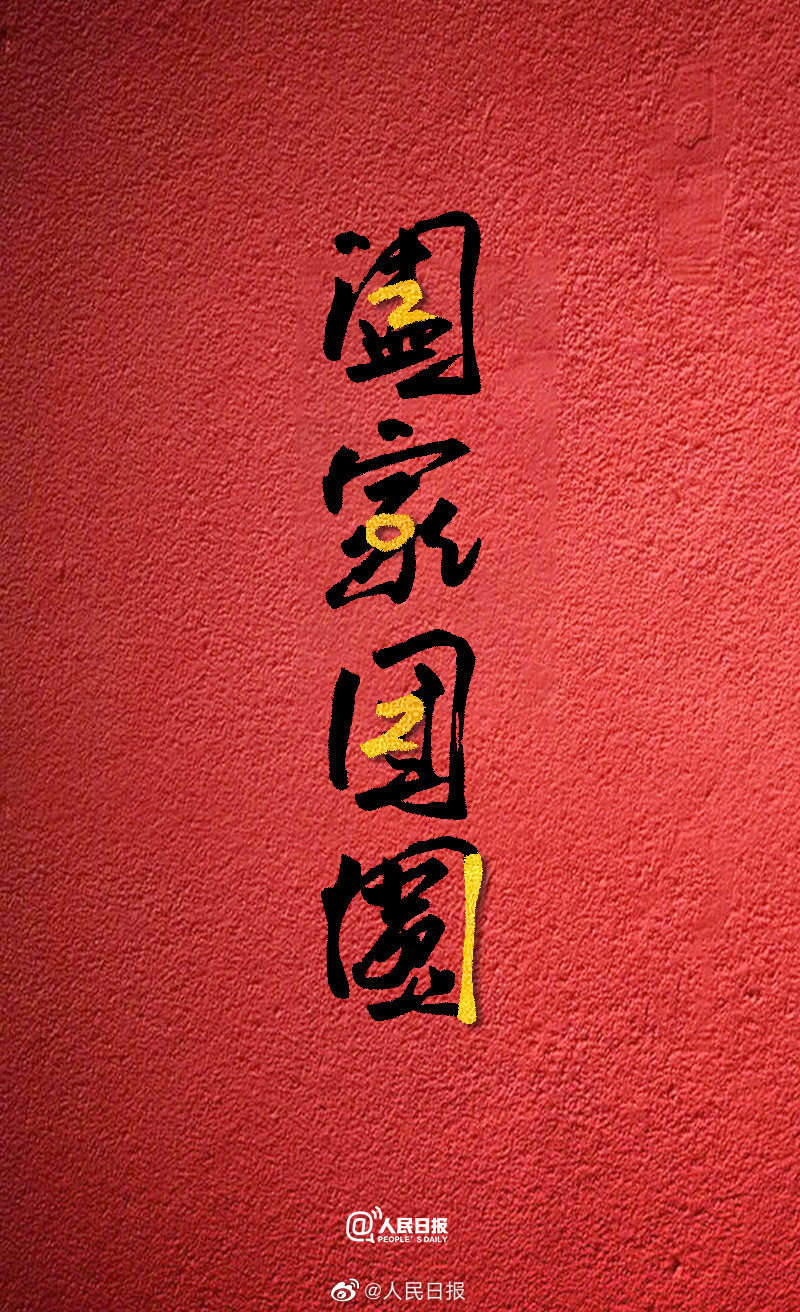 阖家团圆
@人民日报
PEOPLE'S DAILY
@人民日报